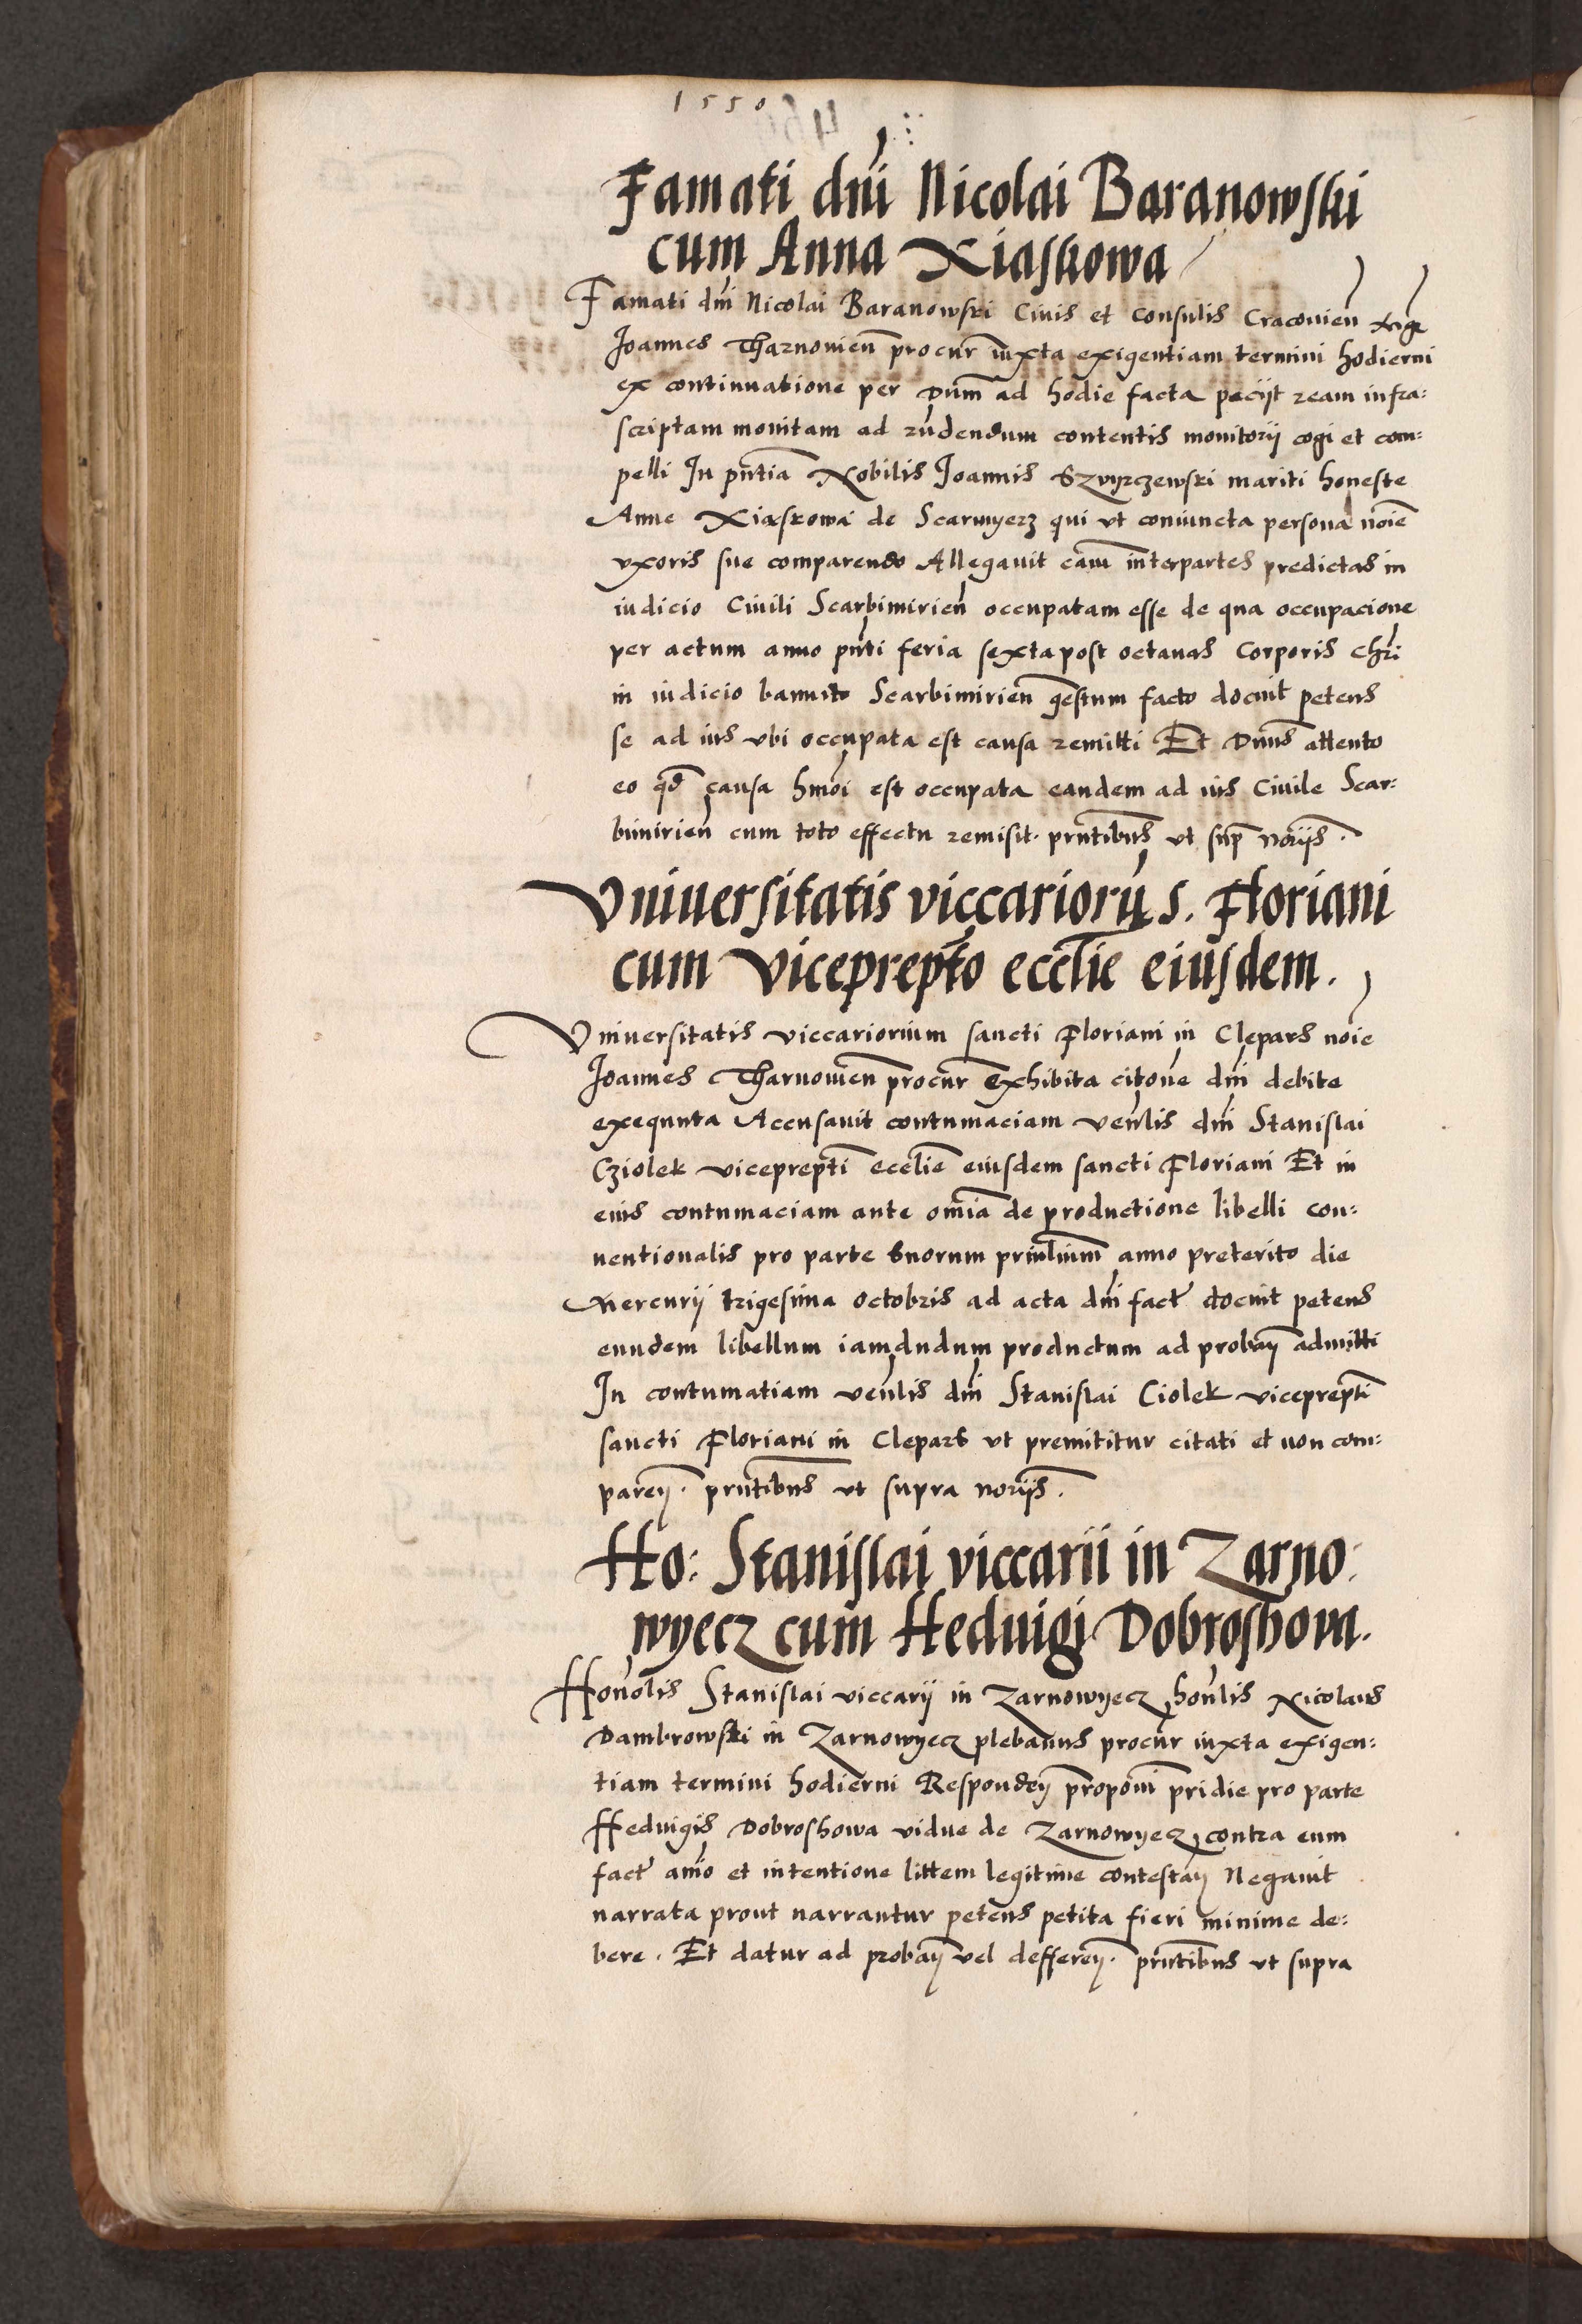 1550
Famati dni Nicolai Baranowski
cum Anna Xiaskowa
Famati dni Nicolai Baranowski Civis et Consulis Cracovien
Joannes Tharnovien procur iuxta exigentiam termini hodierni
ex continuatione per Dnm ad hodie facta peciit ream infra:
scriptam monitam ad rndendum contentis monitorij cogi et com:
pelli In pntia Nobilis Joannis Szvyrczewski mariti honeste
Anne Xiaskowa de Scarmyerz qui ut coniuncta persona noie
vxoris sue comparendo Allegavit cam inter partes predictas in
iudicio Civili Scarbimirien occupatam esse de qua occupacione
per actum anno pnti feria sexta post octavas Corporis Chri
in iudicio bannito Scarbimirien gestum facto docuit petens
se ad ius vbi occupata est causa remitti Et Dnus attento
eo qd causa hmoi est occupata eandem ad ius Civile Scar:
bimirien cum toto effectu remisit. pntibus ut sup noriis.
Vniversitatis viccarioru s. Floriani
cum Viceprepto ecclie eiusdem.
Vniversitatis viccariorium sancti Floriani in Clepars noie
Joannes Tharnovien procur Exhibita citone dni debite
exequuta Accusavit contumaciam venlis dni Stanislai
Cziolek viceprepti ecclie eiusdem sancti Floriani Et in
eius contumaciam ante omia de productione libelli con:
uentionalis pro parte suorum prinlium anno preterito die
Mercurij trigesima octobris ad acta dni fact docuit petens
eundem libellum iamdudum productum ad proban admitti
In contumatiam venlis dni Stanislai Ciolek viceprepti
sancti Floriani in Clepars ut premititur citati et non com:
paren. pntibus ut supra noriis.
Ho: Stanislai viccarii in Zarno:
wyecz cum Hedvigi Dobroshova.
Honolis Stanislai viccarij in Zarnowyecz honlis Nicolaus
Dambrowski in Zarnowyecz plebanus procur iuxta exigen:
tiam termini hodierni Responden proponi pridie pro parte
Hedvigis Dobroshowa vidue de Zarnowyecz contra eum
fact anio et intentione littem legitime contestan Negavit
narrata prout narrantur petens petita fieri minime de:
bere. Et datur ad proban vel defferen. pntibus ut supra